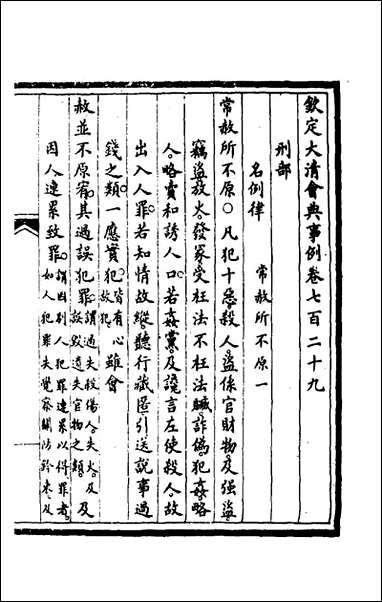 欽定大清會典事例卷七百二十九
刑部
名例律 常赦所不原一
常赦所不原〇凡犯十惡殺人盜係官財物及强盜
竊盜放火發冢受枉法不枉法贓詐僞犯姦略
人略賣和誘人口若姦黨及讒言左使殺人故
出入人罪若知情故縱聽行藏匿引送說事過
錢之類一應實犯皆有心故犯雖會
赦並不原宥其過誤犯罪謂過失殺傷人失火及誤毀遺失官物之類及
因人連累致罪謂因別人犯罪連累以得罪者如人犯罪失覺察關防鈐束及